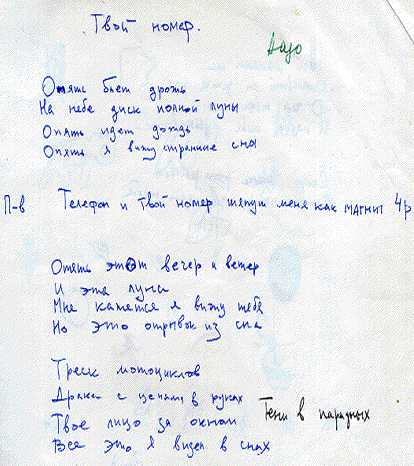 Твой номер.
Опять бьет дрожь
На небе диск полной луны
Опять идет дождь
Опять я вижу странные сны
П-в Телефон и твой номер тянут меня как МАГНИТ 4р
Опять этот вечер и ветер
И эта луна
Мне кажется я вижу тебя
Но это отрывок из сна
Треск мотоциклов
Драка с цепями в руках
Тени в парадных
Твое лицо за окном
Все это я видел в снах